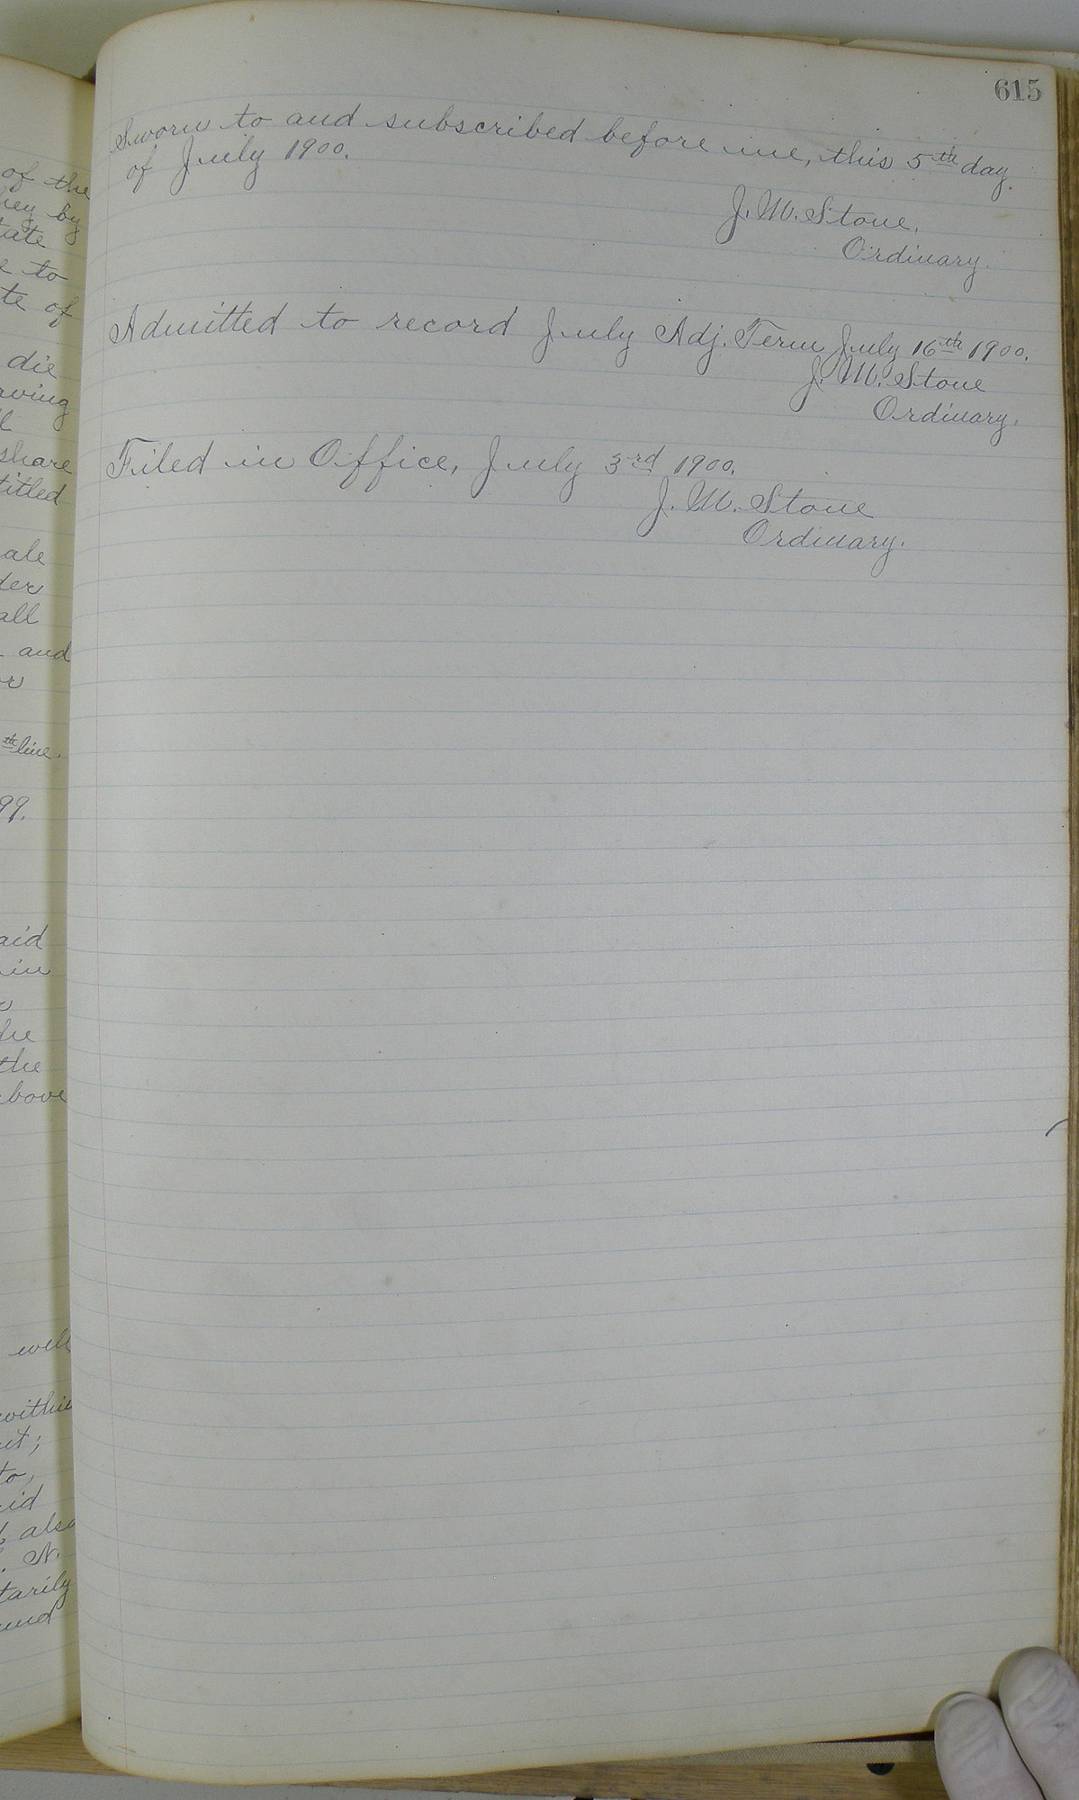 of the
by
ate
to
te of
die
aving
share
titled
ale
der
all
and
th line.
99.
aid
in
the
bove
will
within
to,
id
also
N.
tarily
615
Sworn to and subscribed before me, this 5th day
of July 1900.
J. M. Stone.
Ordinary.
Admitted to record July Adj. Term July 16th 1900.
J. M. Stone
Ordinary.
Filed in Office, July 3rd 1900.
J. M. Stone
Ordinary.